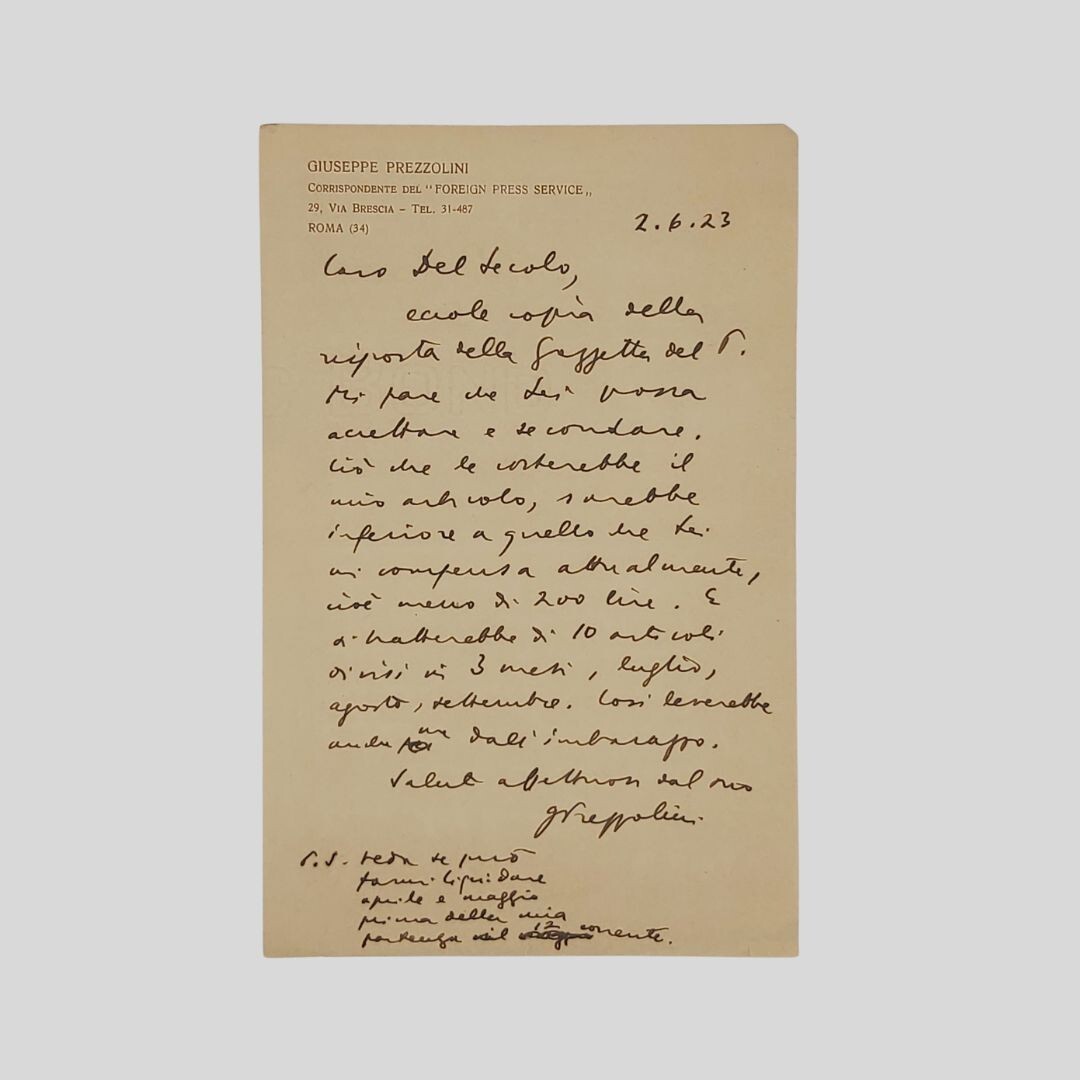 GIUSEPPE PREZZOLINI
CORRISPONDENTE DEL "FOREIGN PRESS SERVICE„
29, VIA BRESCIA – TEL. 31-487
ROMA (34)
2.6.23
Caro Del Secolo,
eccole copia della
risposta della Gazzetta del P.
Mi pare che Lei possa
accettare e secondare.
Ciò che le costerebbe il
mio articolo, sarebbe
inferiore a quello che Lei
mi compensa attualmente,
cioè meno di 200 lire. E
si tratterebbe di 10 articoli
divisi in 3 mesi, luglio,
agosto, settembre. Così leverebbe
anche me dall'imbarazzo.
Saluti affettuosi dal suo
GPrezzolini
P.S. Veda se può
farmi liquidare
aprile e maggio
prima della mia
partenza il 12 corrente.